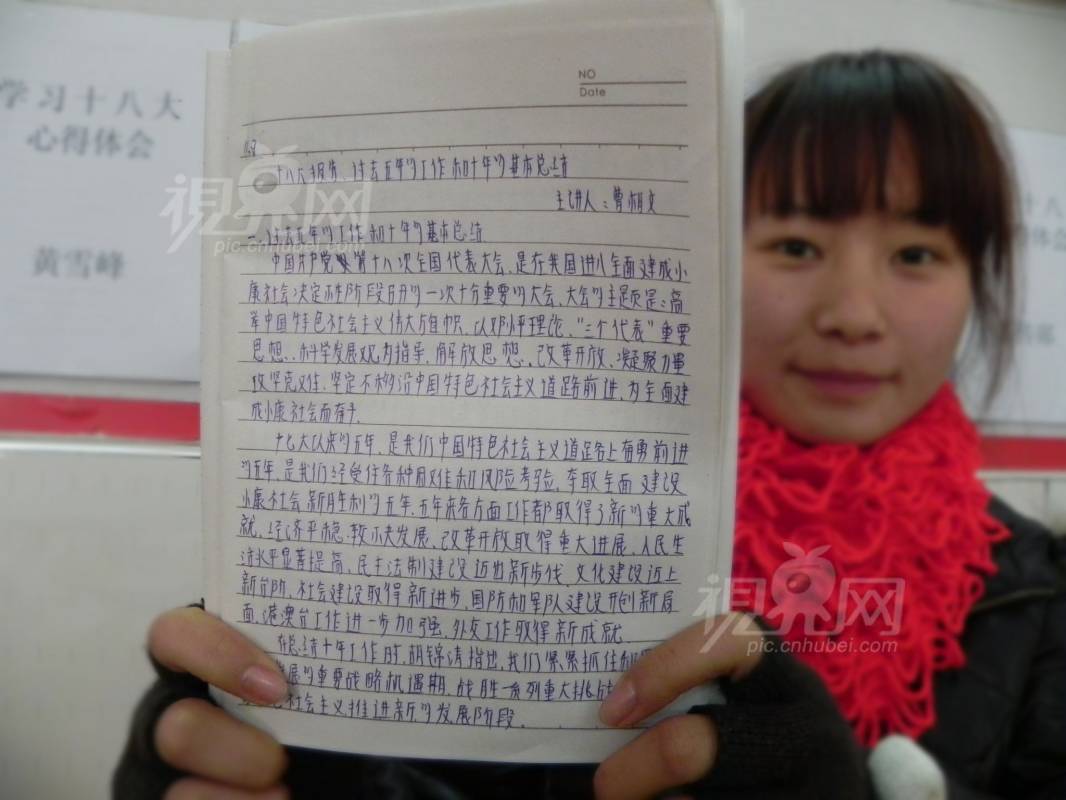 学习十八大
心得体会
黄雪峰
NO
Date
十八大报告、过去五年的工作和十年的基本总结
主讲人：曹相文
一、过去五年的工作和十年的基本总结
中国共产党第十八次全国代表大会，是在我国进入全面建成小
康社会决定性阶段召开的一次十分重要的大会，大会的主题是：高
举中国特色社会主义伟大旗帜，以邓小平理论、“三个代表”重要
思想、科学发展观为指导，解放思想，改革开放，凝聚力量
攻坚克难，坚定不移沿中国特色社会主义道路前进，为全面建
成小康社会而奋斗
十七大以来的五年，是我们中国特色社会主义道路上奋勇前进
的五年，是我们经受住各种困难和风险考验，夺取全面建设
小康社会新胜利的五年，五年来各方面工作都取得了新的重大成
就，经济平稳较快发展、改革开放取得重大进展，人民生
活水平显著提高，民主法制建设迈出新步伐，文化建设迈上
新台阶，社会建设取得新进步，国防和军队建设开创新局
面，港澳台工作进一步加强，外交工作取得新成就
在总结十年工作时，胡锦涛指出，我们紧紧抓住和
展的重要战略机遇期，战胜一系列重大挑战
社会主义推进新的发展阶段。
視界网
pic.cnhubei.com
視界网
pic.cnhubei.com